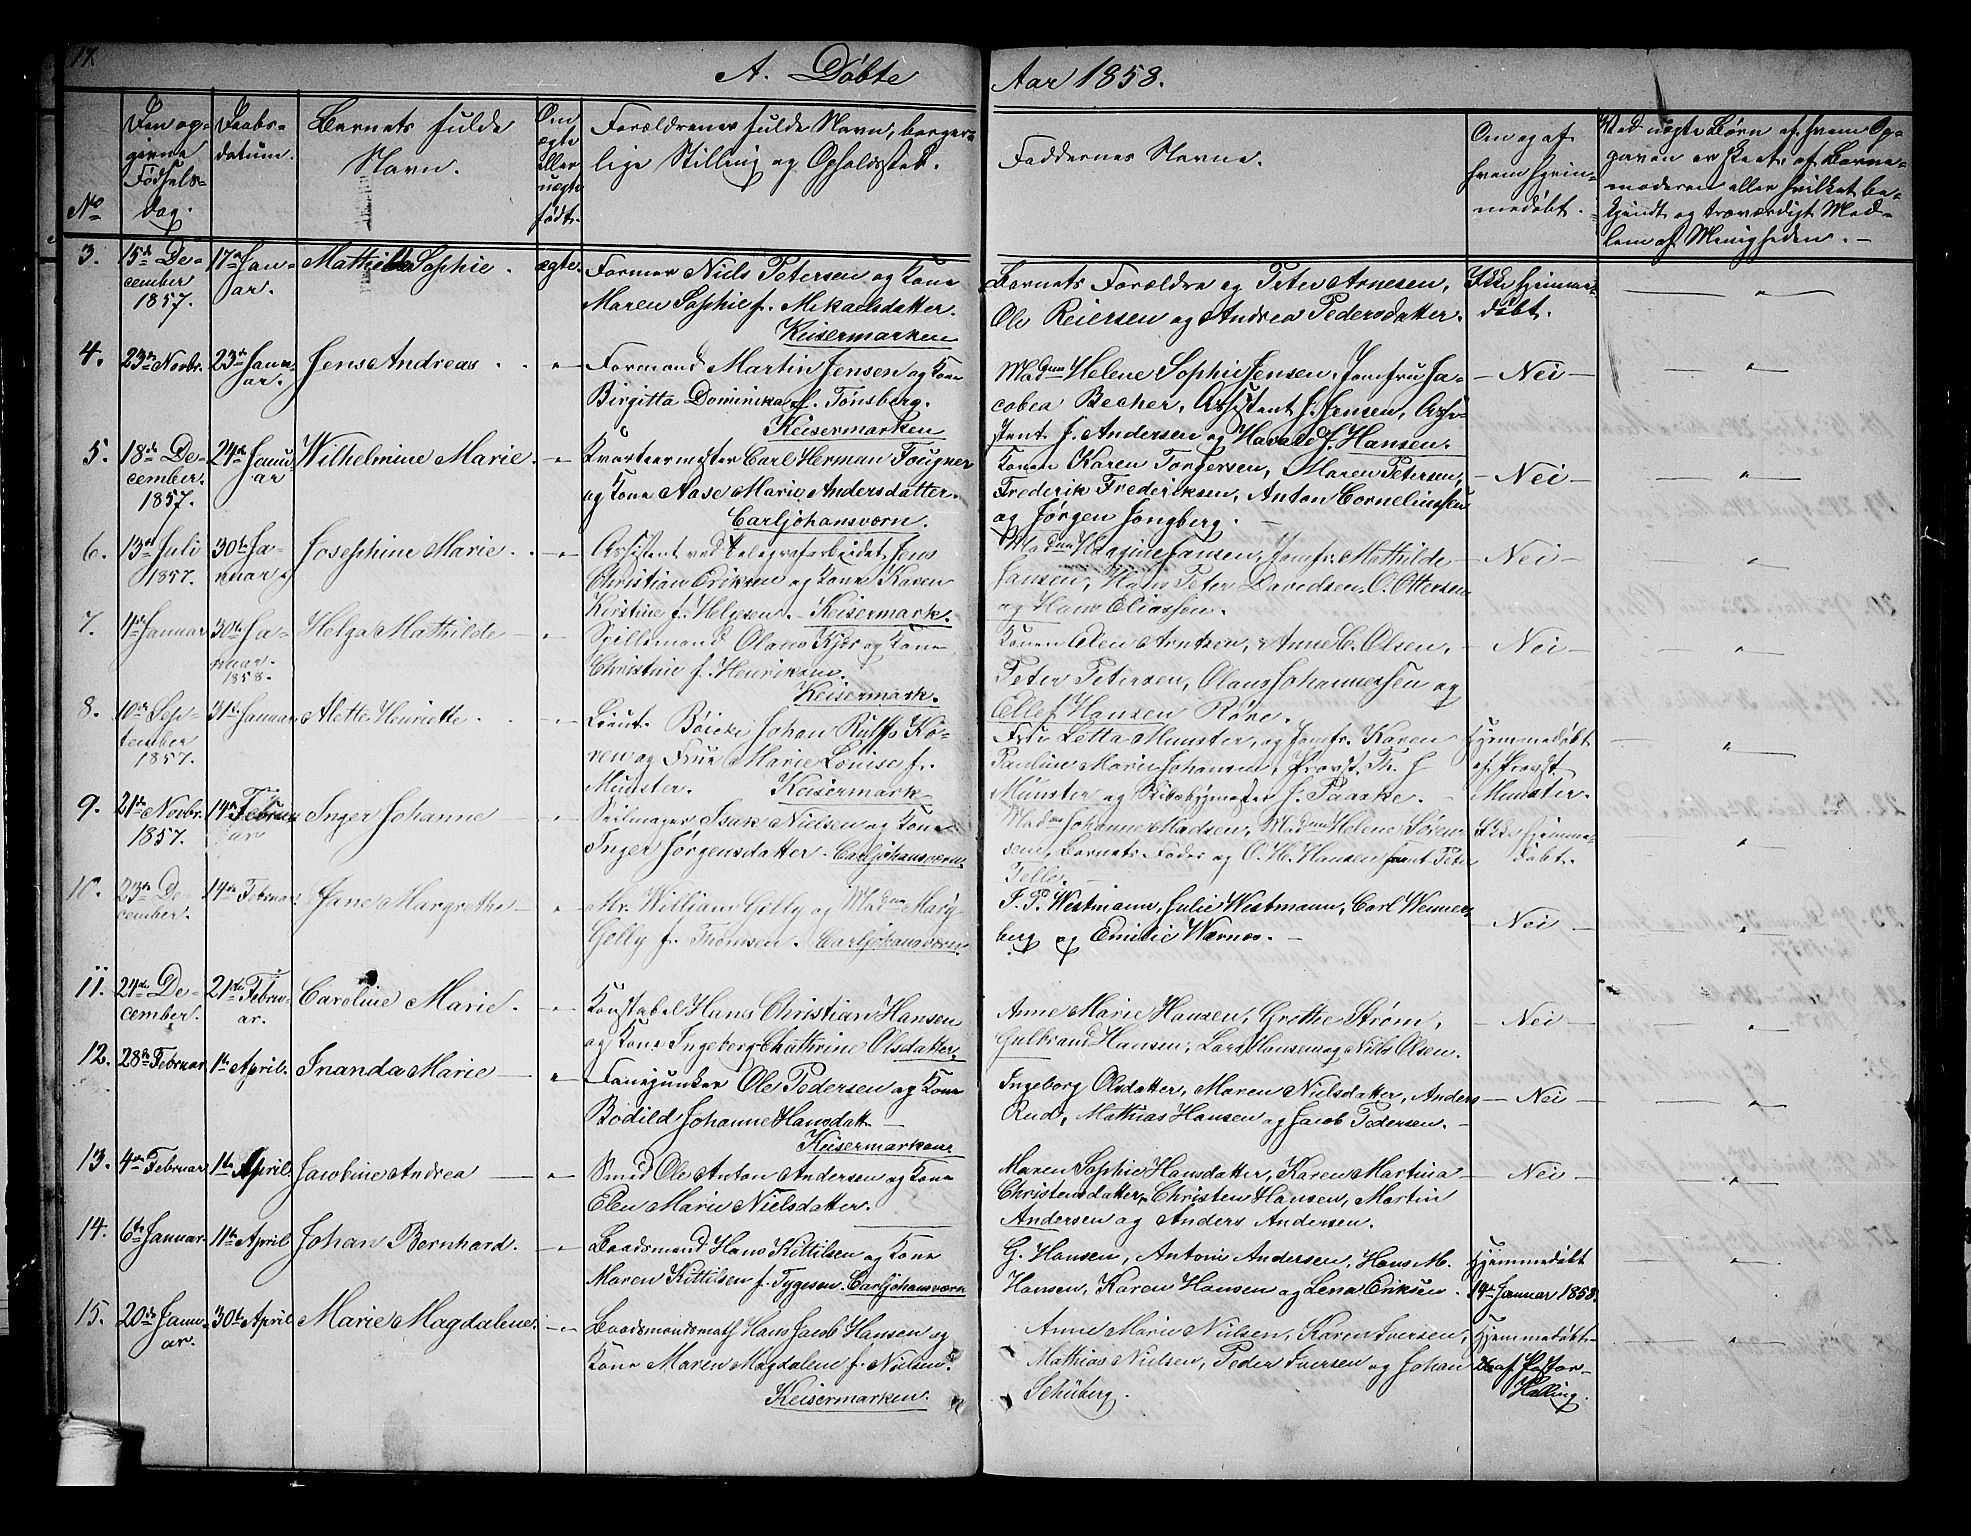 17.
A. Døbte Aar 1858.
No
Den opgivne Fødsels-dag.
Daabs-datum.
Barnets fulde Navn.
Om ægte eller uægte født.
Forældrenes fulde Navn, borgerlige Stilling og Opholdssted.
Faddernes Navne.
Om og af hvem hjemmedøbt.
Ved uægte Børn af hvem Opgaven er skeet, af Barnemoderen eller hvilket bekjendt og troværdigt Medlem af Menigheden. —
3. 15de December 1857. 17de Januar. Mathilde Sophie. ægte.
Former Niels Petersen og Kone
Maren Sophie f. Mekaelsdatter.
Keisermarken
Barnets Forældre og Peter Arnesen,
Ole Reiersen og Andrea Pedersdatter.
Ikke hjemmedøbt.
4. 23de Novbr. 23de Januar. Jens Andreas . . "
Formand Martin Jensen og Kone
Birgitta Dominika f. Tønsberg.
Keisermarken
Madmm Helene Sophie Jensen, Jomfru Ja-
cobea Becher, Assistent J. Jensen, Assi-
stent J. Andersen og Harald J. Hansen.
— Nei —
5. 18de December. 1857. 24de Januar Wilhelmine Marie. — " —
Kvarteermester Carl Herman Fougner
og Kone Aase Marie Andersdatter.
Carljohansværn.
Konen Karen Torgersen, Maren Petersen,
Frederik Frederiksen, Anton Corneliussen
og Jørgen Jongberg. —
— Nei —
6. 13de Juli 1857. 30te Januar Josephine Marie . . — " —
Assistent ved Telegrafarbeidet Jens
Christian Eriksen og Kone Karen
Kirstine f. Helgesen. — Keisermark.
Jansen, Jomfr. Mathilde
Jansen, Hans Peter Davidsen, O. Ottersen
og Hans Eliassen.
— Nei —
7. 4de Januar 30te Januar. 1858. Helga Mathilde — "
Spillemand Olaus Kjær og Kone
Christine f. Henriksen.
Keisermark.
Konen Elen Arntzen, Anne C. Olsen,
Peter Petersen, Olaus Johannessen og
Ellef Hansen Røre.
Nei —
8. 10de September 1857. 31te Januar Alette Henriette . — " —
Lieut. Johan Rulffs Ko-
ren og Frue Marie Louise f.
Munster. Keisermark
Fru Letta Munster, og Jomfr. Karen
Pauline Marie Johansen, Provst Th. J
Munster og Skibsbygmester J. Paaske. —
Hjemmedøbt af Provst Munster.
9. 21de Novbr. 1857. 14de Februar Inger Johanne — — " —
Seilmager Isak Nielsen og Kone
Inger Jørgensdatter. Carljohansværn.
Madm Johanne Madsen, Madmm Helene Søren-
sene, Barnets Fader og O. H. Hansen samt Peter
Telle. —
Ikke hjemmedøbt.
10. 23de December. 14de Februar. Jane Margrethe — "
Mr. William Gelly og Madm Mary
Gelly f. Thomsen. Carljohansværn.
T. P. Westmann, Julie Westmann, Carl Wenners-
berg og Emilie Wærnes. —
Nei —
11. 24de December. 21de Februar. Caroline Marie. — " —
Konstabel Hans Christian Hansen
og Kone Ingeborg Chathrine Olsdatter.
Anne Marie Hansen, Grethe Strøm,
Gulbrand Hansen, Lars Hansen og Niels Olsen.
— Nei —
12. 28de Februar. 1te April. Inanda Marie — "
Fanejunker Ole Pedersen og Kone
Bodild Johanne Hansdatt. —
Keisermarken.
Ingeborg Olsdatter, Maren Nielsdatter, Anders
Rud, Mathias Hansen og Jacob Pedersen. —
— Nei —
13. 4de Februar 1te April Jacobine Andrea — — " —
Smed Ole Anton Andersen og Kone
Elen Marie Nielsdatter.
Maren Sophie Hansdatter, Karen Martina
Christensdatter, Christen Hansen, Martin
Andersen og Anders Andersen.
— Nei
14. 6te Januar 11te April Johan Bernhard. — " —
Baadsmand Hans Kittilsen og Kone
Maren Kittilsen f. Tygesen. Carljohansværn
G. Hansen, Antoni Andersen, Hans M.
Hansen, Karen Hansen og Lena Eriksen.
Hjemmedøbt 19de Januar 1858.
15. 20de Januar. 30te April Marie Magdalene. — " —
Baadsmandsmath Hans Jacob Hansen og
Kone Maren Magdalene f. Nielsen.
Keisermarken.
Anne Marie Nielsen, Karen Iversen,
Mathias Nielsen, Peder Iversen og Johan
Schüberg.
Hjemmedøbt af Pastor Halling.